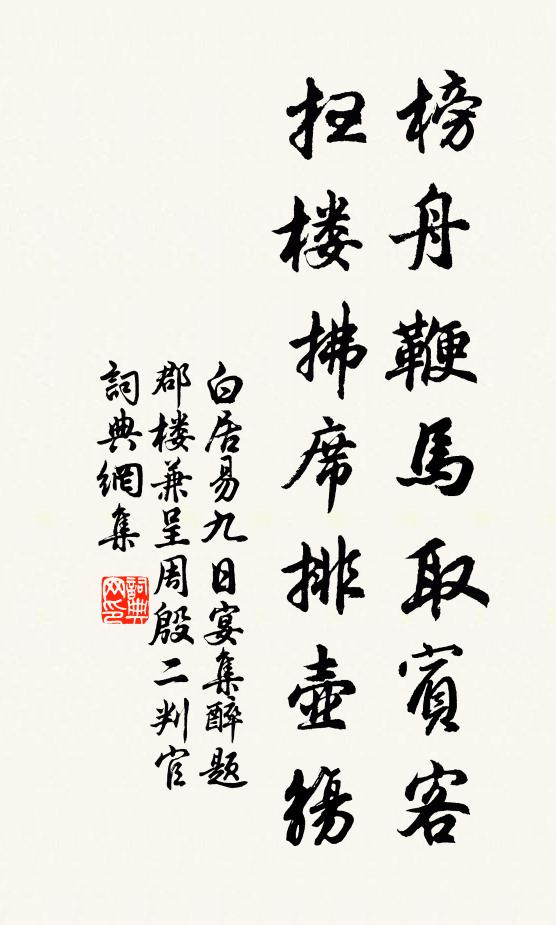 榜舟鞭馬取賓客
扫楼拂席排壺觴
白居易九日宴集醉题
郡楼兼呈周殷二判官
詞典網集
詞典网印